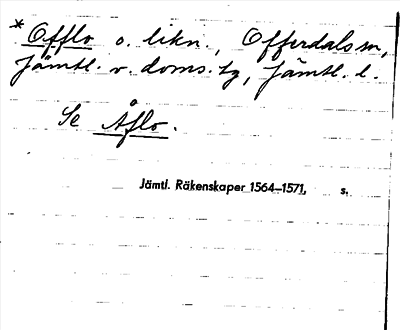 * Offlo o. likn., Offerdals sn,
Jämtl. v. doms. tg, Jämtl. l.
Se Åflo.
Jämtl. Räkenskaper 1564–1571, s.